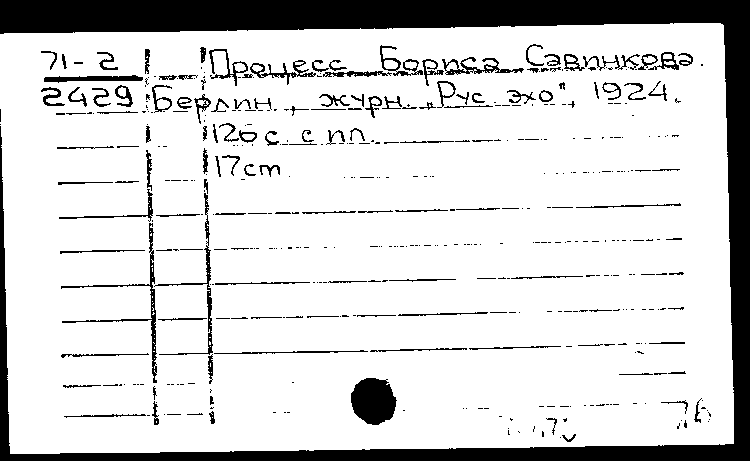 71-2 Процесс Бориса Савинкова.
2429 Берлин, журн. „Рус эхо", 1924.
126 с. с ил.
17cm